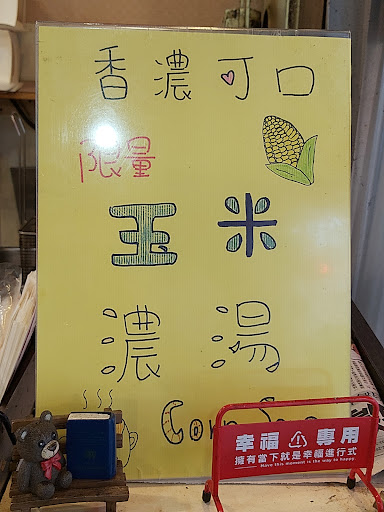 香濃可口
限量
玉米
濃湯
Corn
幸福 專用
擁有當下就是幸福進行式
Have this moment is the way to happy.